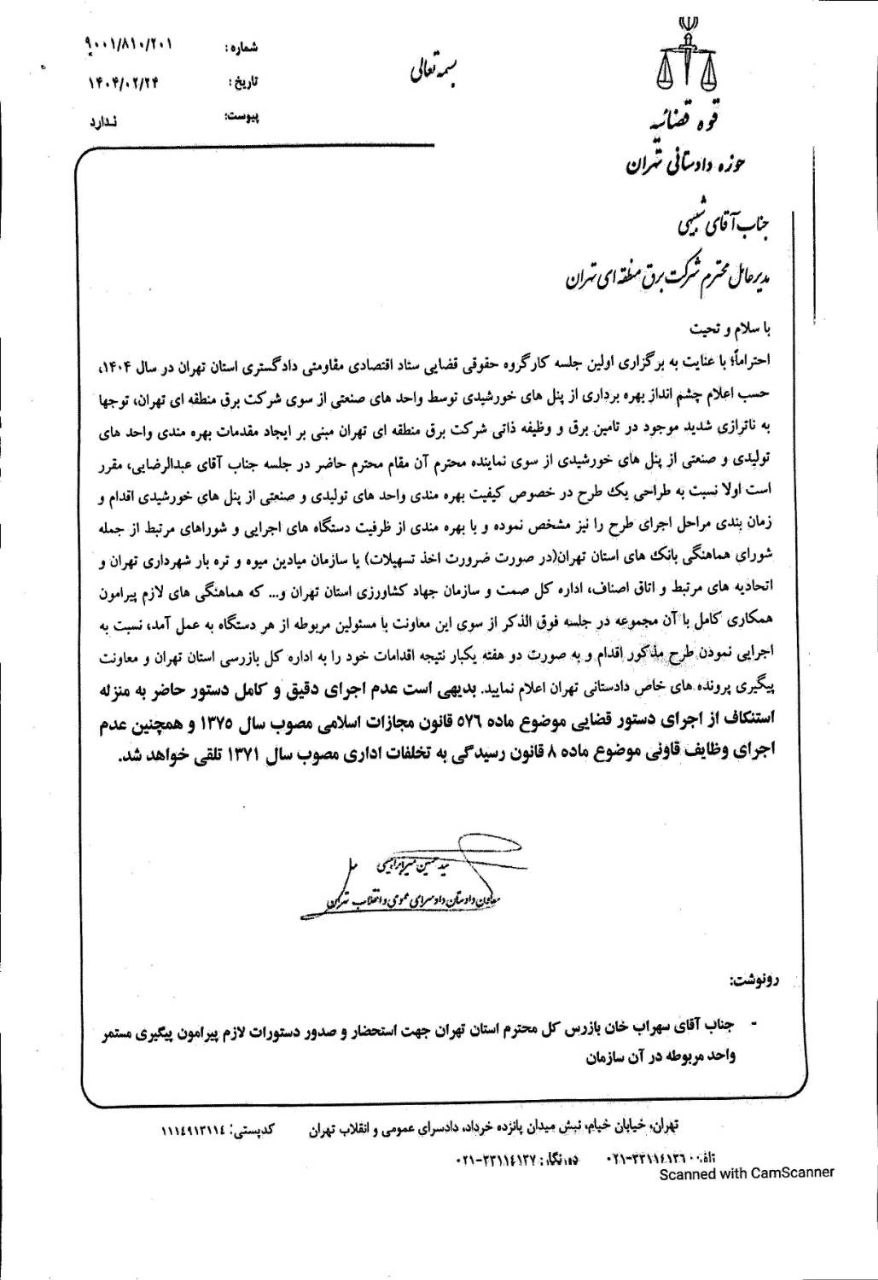 شماره: ۹۰۰۱/۸۱۰/۲۰۱
تاریخ: ۱۴۰۴/۰۲/۲۴
پیوست: ندارد
بسمه تعالی
قوه قضائیه
حوزه دادستانی تهران
جناب آقای شبیهی
مدیرعامل محترم شرکت برق منطقه ای تهران
با سلام و تحیت
احتراماً؛ با عنایت به برگزاری اولین جلسه کارگروه حقوقی قضایی ستاد اقتصادی مقاومتی دادگستری استان تهران در سال ۱۴۰۴،
حسب اعلام چشم انداز بهره برداری از پنل های خورشیدی توسط واحد های صنعتی از سوی شرکت برق منطقه ای تهران، توجها
به ناترازی شدید موجود در تامین برق و وظیفه ذاتی شرکت برق منطقه ای تهران مبنی بر ایجاد مقدمات بهره مندی واحد های
تولیدی و صنعتی از پنل های خورشیدی از سوی نماینده محترم آن مقام محترم حاضر در جلسه جناب آقای عبدالرضایی، مقرر
است اولا نسبت به طراحی یک طرح در خصوص کیفیت بهره مندی واحد های تولیدی و صنعتی از پنل های خورشیدی اقدام و
زمان بندی مراحل اجرای طرح را نیز مشخص نموده و با بهره مندی از ظرفیت دستگاه های اجرایی و شوراهای مرتبط از جمله
شورای هماهنگی بانک های استان تهران(در صورت ضرورت اخذ تسهیلات) یا سازمان میادین میوه و تره بار شهرداری تهران و
اتحادیه های مرتبط و اتاق اصناف، اداره کل صمت و سازمان جهاد کشاورزی استان تهران و... که هماهنگی های لازم پیرامون
همکاری کامل با آن مجموعه در جلسه فوق الذکر از سوی این معاونت با مسئولین مربوطه از هر دستگاه به عمل آمد، نسبت به
اجرایی نمودن طرح مذکور اقدام و به صورت دو هفته یکبار نتیجه اقدامات خود را به اداره کل بازرسی استان تهران و معاونت
پیگیری پرونده های خاص دادستانی تهران اعلام نمایید. بدیهی است عدم اجرای دقیق و کامل دستور حاضر به منزله
استنکاف از اجرای دستور قضایی موضوع ماده ۵۷۶ قانون مجازات اسلامی مصوب سال ۱۳۷۵ و همچنین عدم
اجرای وظایف قاونی موضوع ماده ۸ قانون رسیدگی به تخلفات اداری مصوب سال ۱۳۷۱ تلقی خواهد شد.
سید حسین میرابراهیمی
معاون دادستان دادسرای عمومی و انقلاب تهران
رونوشت:
- جناب آقای سهراب خان بازرس کل محترم استان تهران جهت استحضار و صدور دستورات لازم پیرامون پیگیری مستمر
واحد مربوطه در آن سازمان
تهران، خیابان خیام، نبش میدان پانزده خرداد، دادسرای عمومی و انقلاب تهران کدپستی: ۱۱۱۴۹۱۳۱۱۴
تلفن: ۰۲۱-۳۳۱۱۴۱۳۶ دورنگار: ۰۲۱-۳۳۱۱۴۱۳۷
Scanned with CamScanner